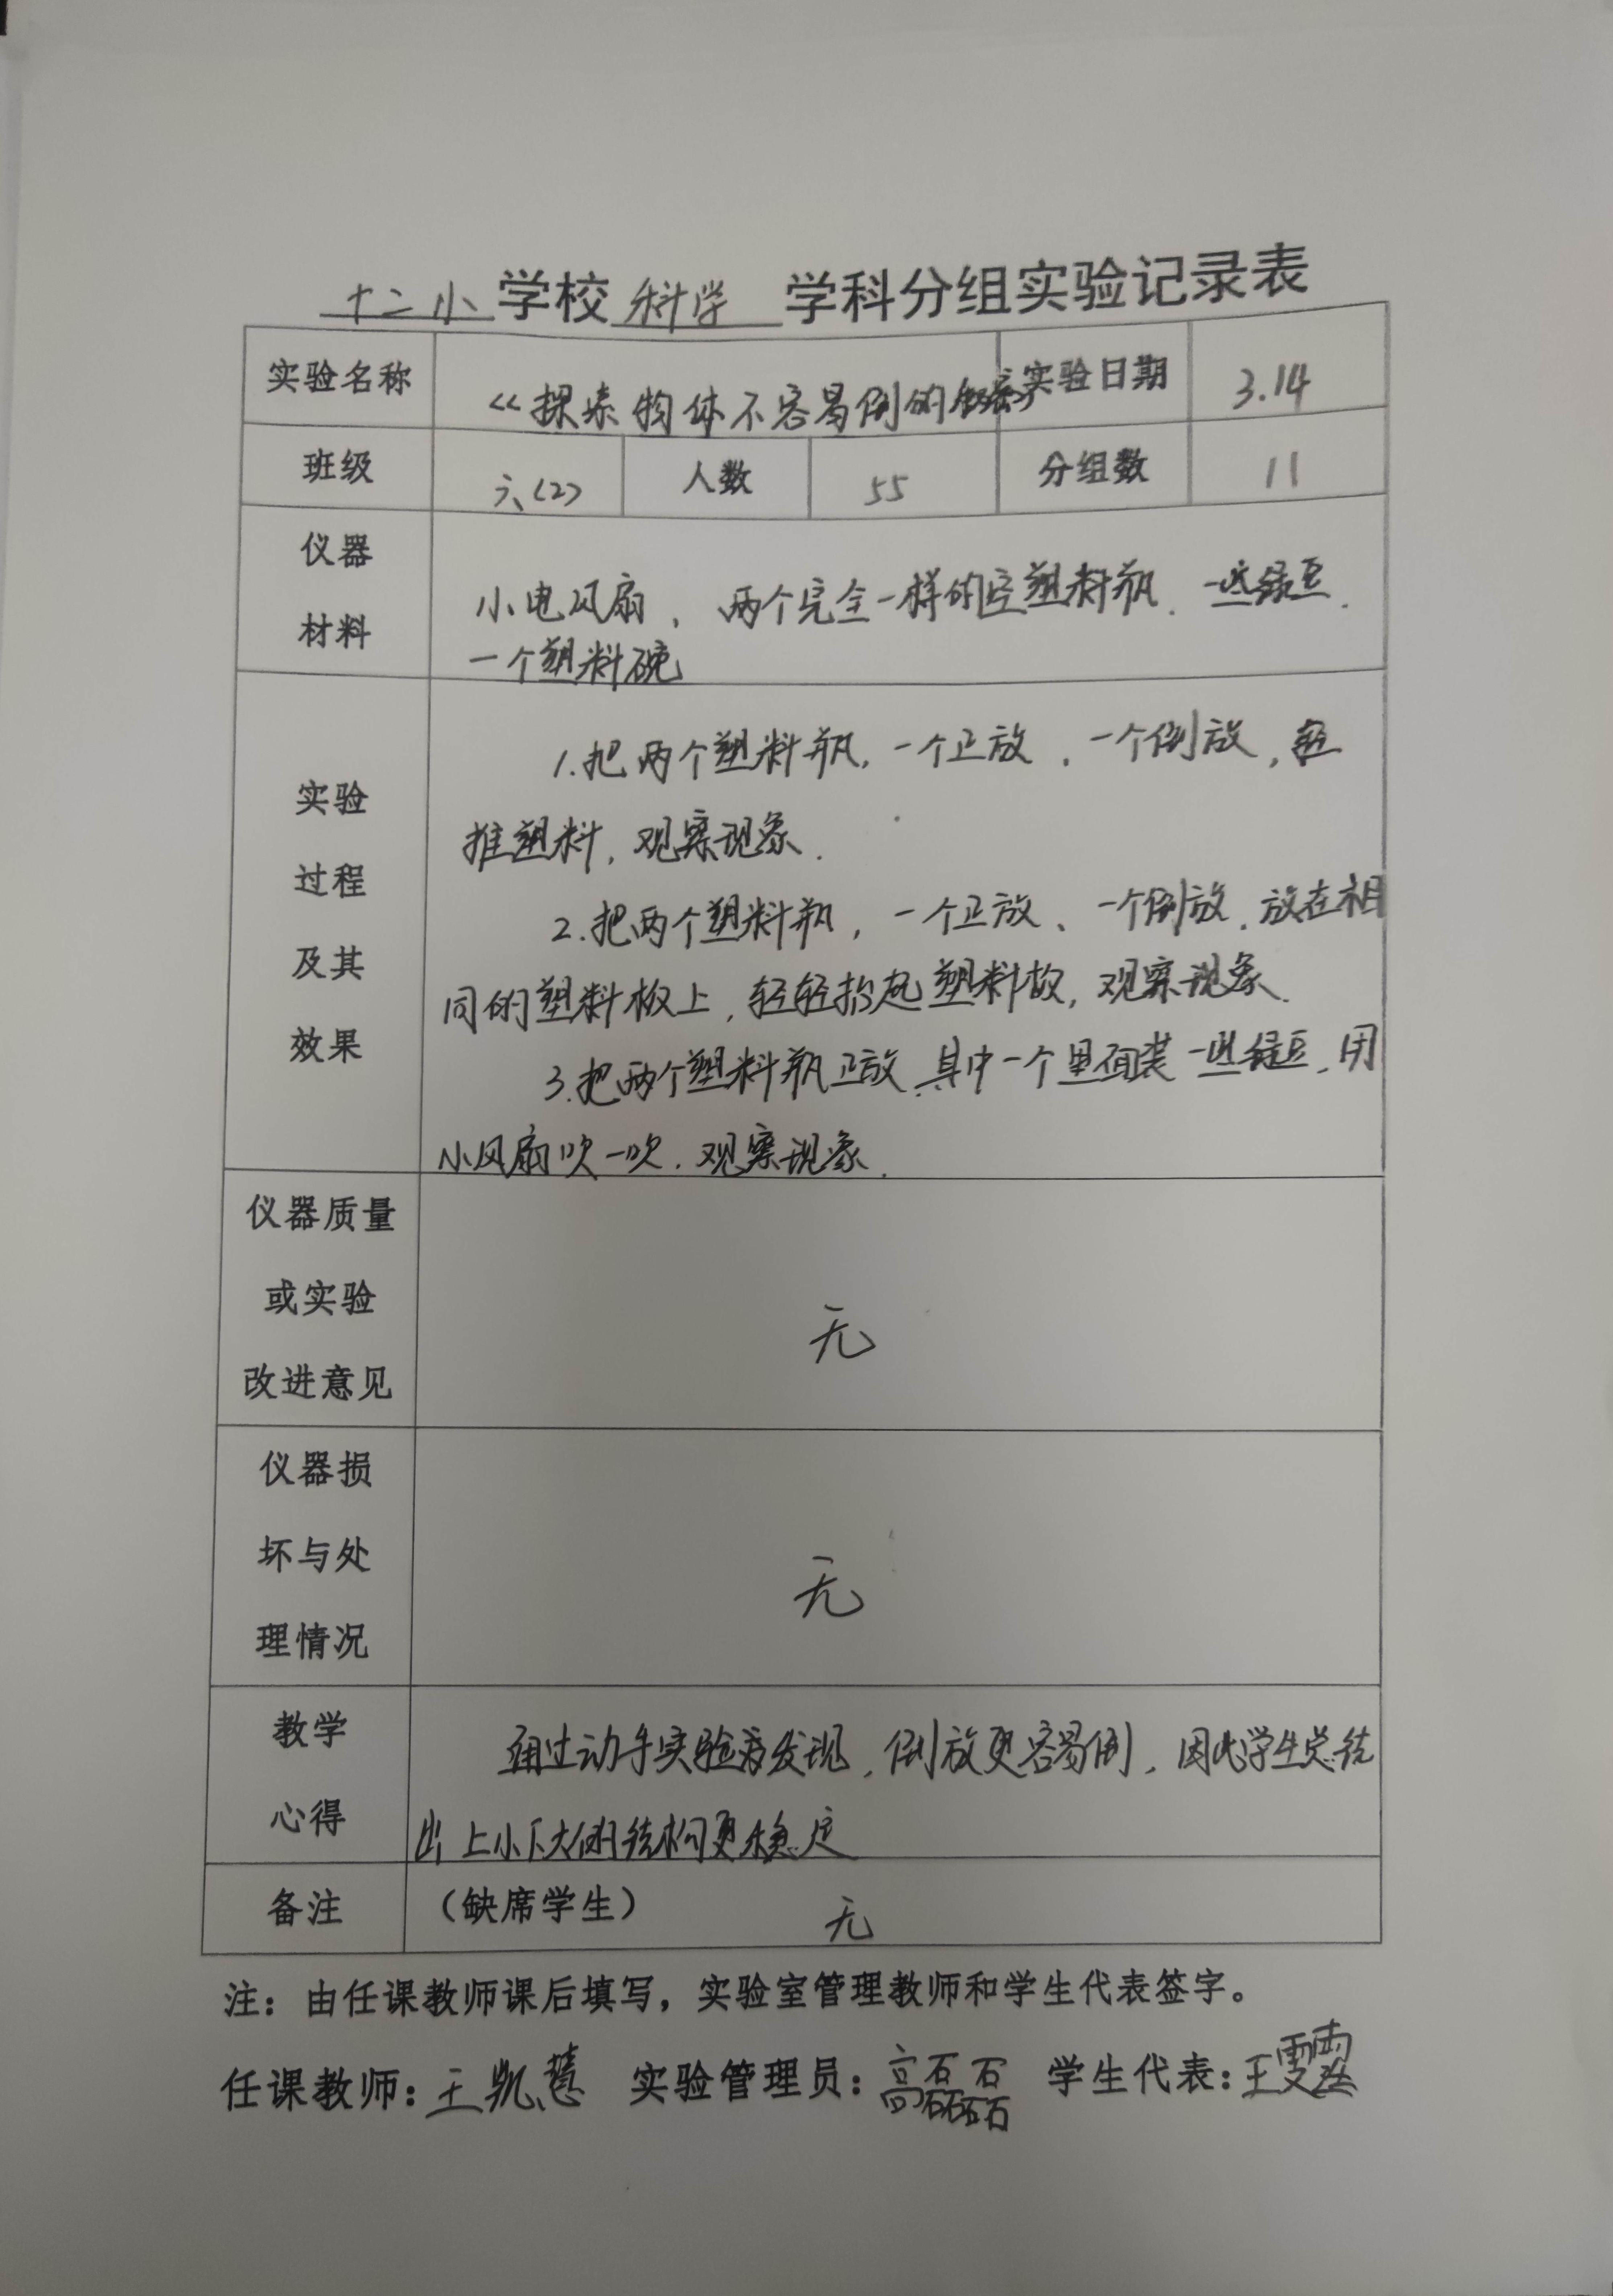 十二小学校科学学科分组实验记录表
实验名称 《探索物体不容易倒的秘密》 实验日期 3.14
班级 六(2) 人数 55 分组数 11
仪器
材料
小电风扇、两个完全一样的空塑料瓶、一些绿豆、
一个塑料碗
实验
过程
及其
效果
1.把两个塑料瓶,一个正放、一个倒放,轻
推塑料,观察现象.
2.把两个塑料瓶,一个正放、一个倒放、放在相
同的塑料板上,轻轻抬起塑料板,观察现象.
3.把两个塑料瓶正放,其中一个里面装一些绿豆,用
小风扇吹一吹,观察现象.
仪器质量
或实验
改进意见
无
仪器损
坏与处
理情况
无
教学
心得
通过动手实验发现,倒放更容易倒,因此学生总结
出上小下大的结构更稳定
备注 (缺席学生) 无
注:由任课教师课后填写,实验室管理教师和学生代表签字。
任课教师:王凯慧 实验管理员:高磊磊 学生代表:王雯